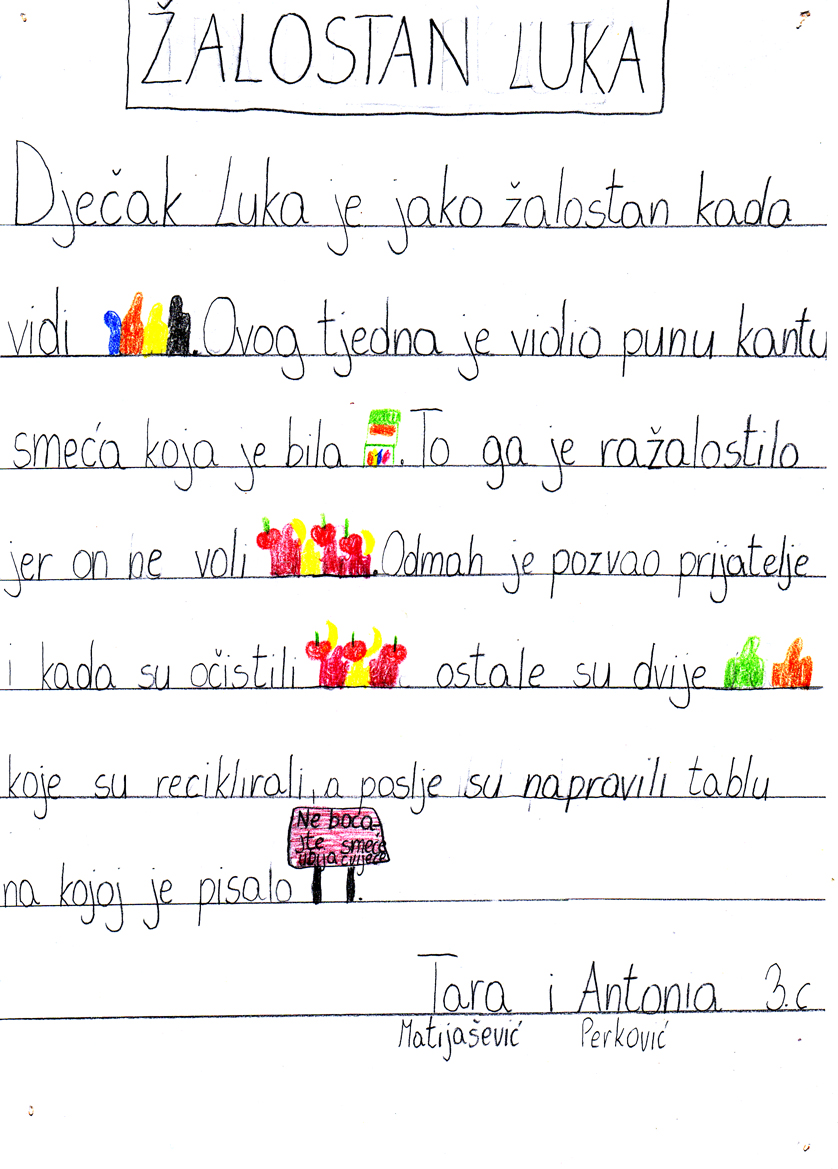 ŽALOSTAN LUKA
Dječak Luka je jako žalostan kada
vidi .Ovog tjedna je vidio punu kantu
smeća koja je bila .To ga je ražalostilo
jer on ne voli .Odmah je pozvao prijatelje
i kada su očistili ostale su dvije
koje su reciklirali, a poslje su napravili tablu
Ne boca-
jte smeće
ubija cvijeće
na kojoj je pisalo .
Tara i Antonia 3.c
Matijašević Perković